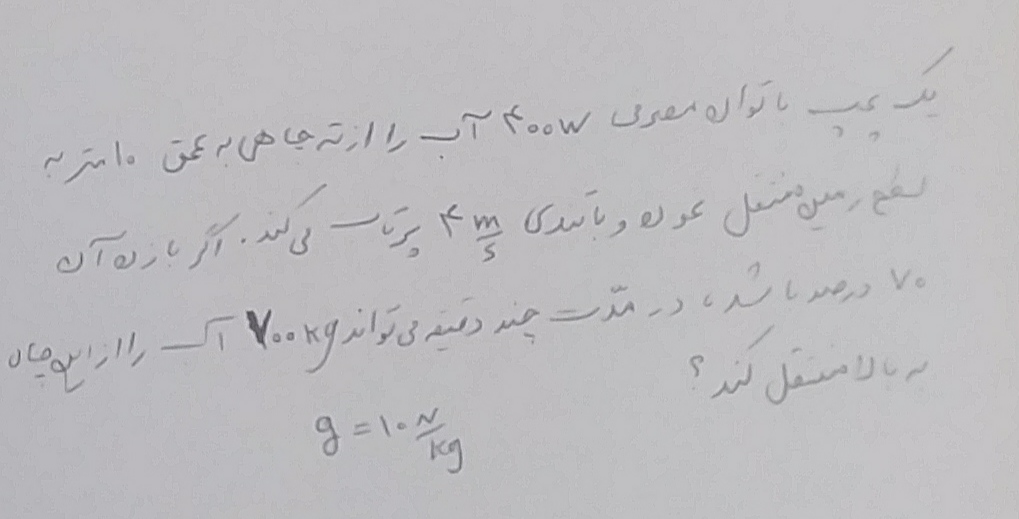 یک پمپ با توان مصرفی ۴۰۰W آب را از ته چاهی به عمق ۱۰ متر به
سطح زمین منتقل نموده و با تندی ۴ m/s پرتاب می‌کند. اگر بازده آن
۷۰ درصد باشد، در مدّت چند دقیقه می‌تواند ۷۰۰kg آب را از این چاه
به بالا منتقل کند؟
g = ۱۰ N/kg